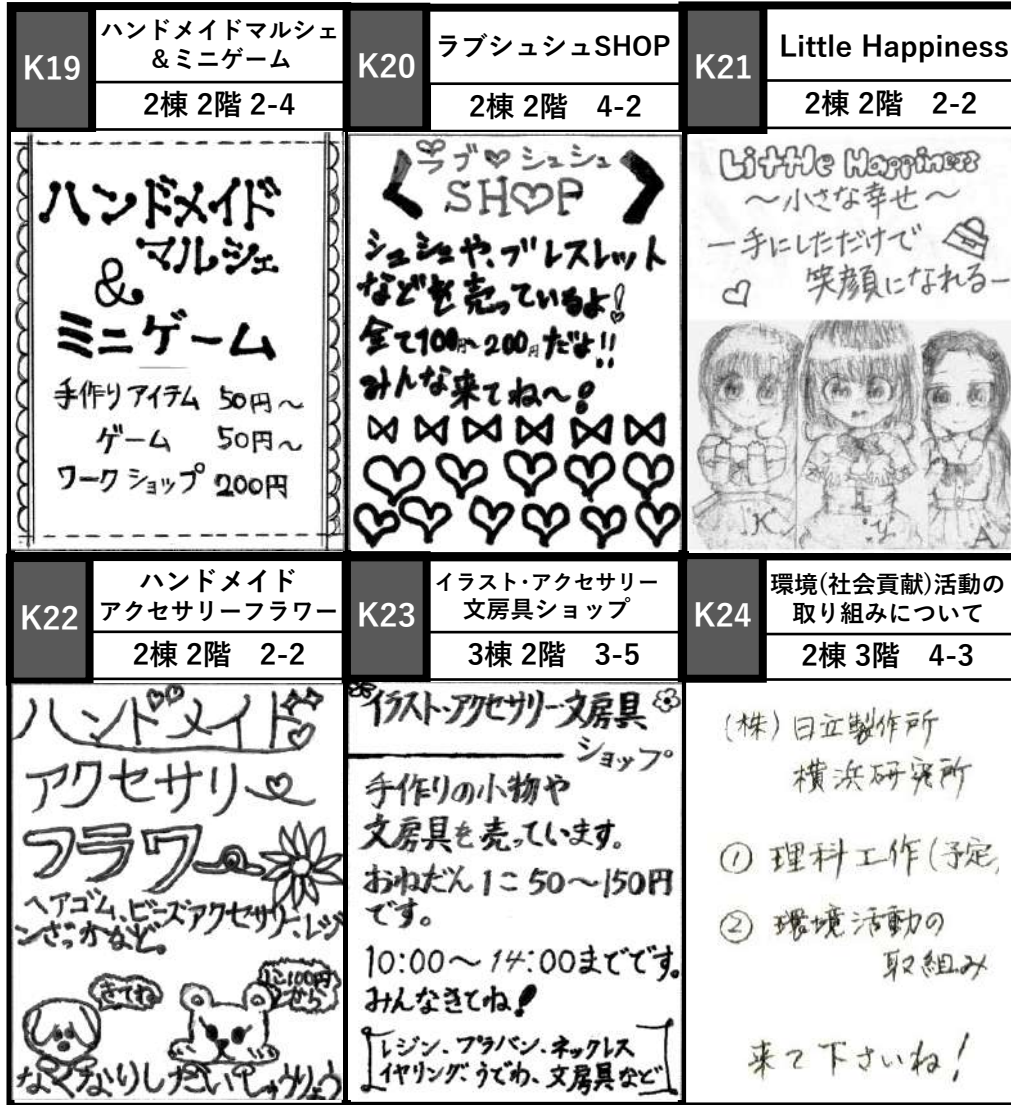 K19
ハンドメイドマルシェ
&ミニゲーム
2棟 2階 2-4
ハンドメイド
マルシェ
&
ミニゲーム
手作りアイテム 50円～
ゲーム 50円～
ワークショップ 200円
K20
ラブシュシュSHOP
2棟 2階 4-2
ラブ♡シュシュ
SH♡P
シュシュや、ブレスレット
などを売っているよ!
全て100円～200円だよ!!
みんな来てね～!
K21
Little Happiness
2棟 2階 2-2
Little Happiness
～小さな幸せ～
ー手にしただけで
笑顔になれるー
K
L
な
A
K22
ハンドメイド
アクセサリーフラワー
2棟 2階 2-2
ハンドメイド
アクセサリー
フラワー
ヘアゴム、ビーズアクセサリー、レジ
ンざっかなど。
きてね
1こ100円
から
なくなりしだいしゅうりょう
K23
イラスト・アクセサリー
文房具ショップ
3棟 2階 3-5
イラスト・アクセサリー・文房具
ショップ
手作りの小物や
文房具を売っています。
おねだん1こ50～150円
です。
10:00～14:00までです。
みんなきてね!
レジン、プラバン、ネックレス
イヤリング、うでわ、文房具など
K24
環境(社会貢献)活動の
取り組みについて
2棟 3階 4-3
(株)日立製作所
横浜研究所
① 理科工作(予定)
② 環境活動の
取組み
来て下さいね!